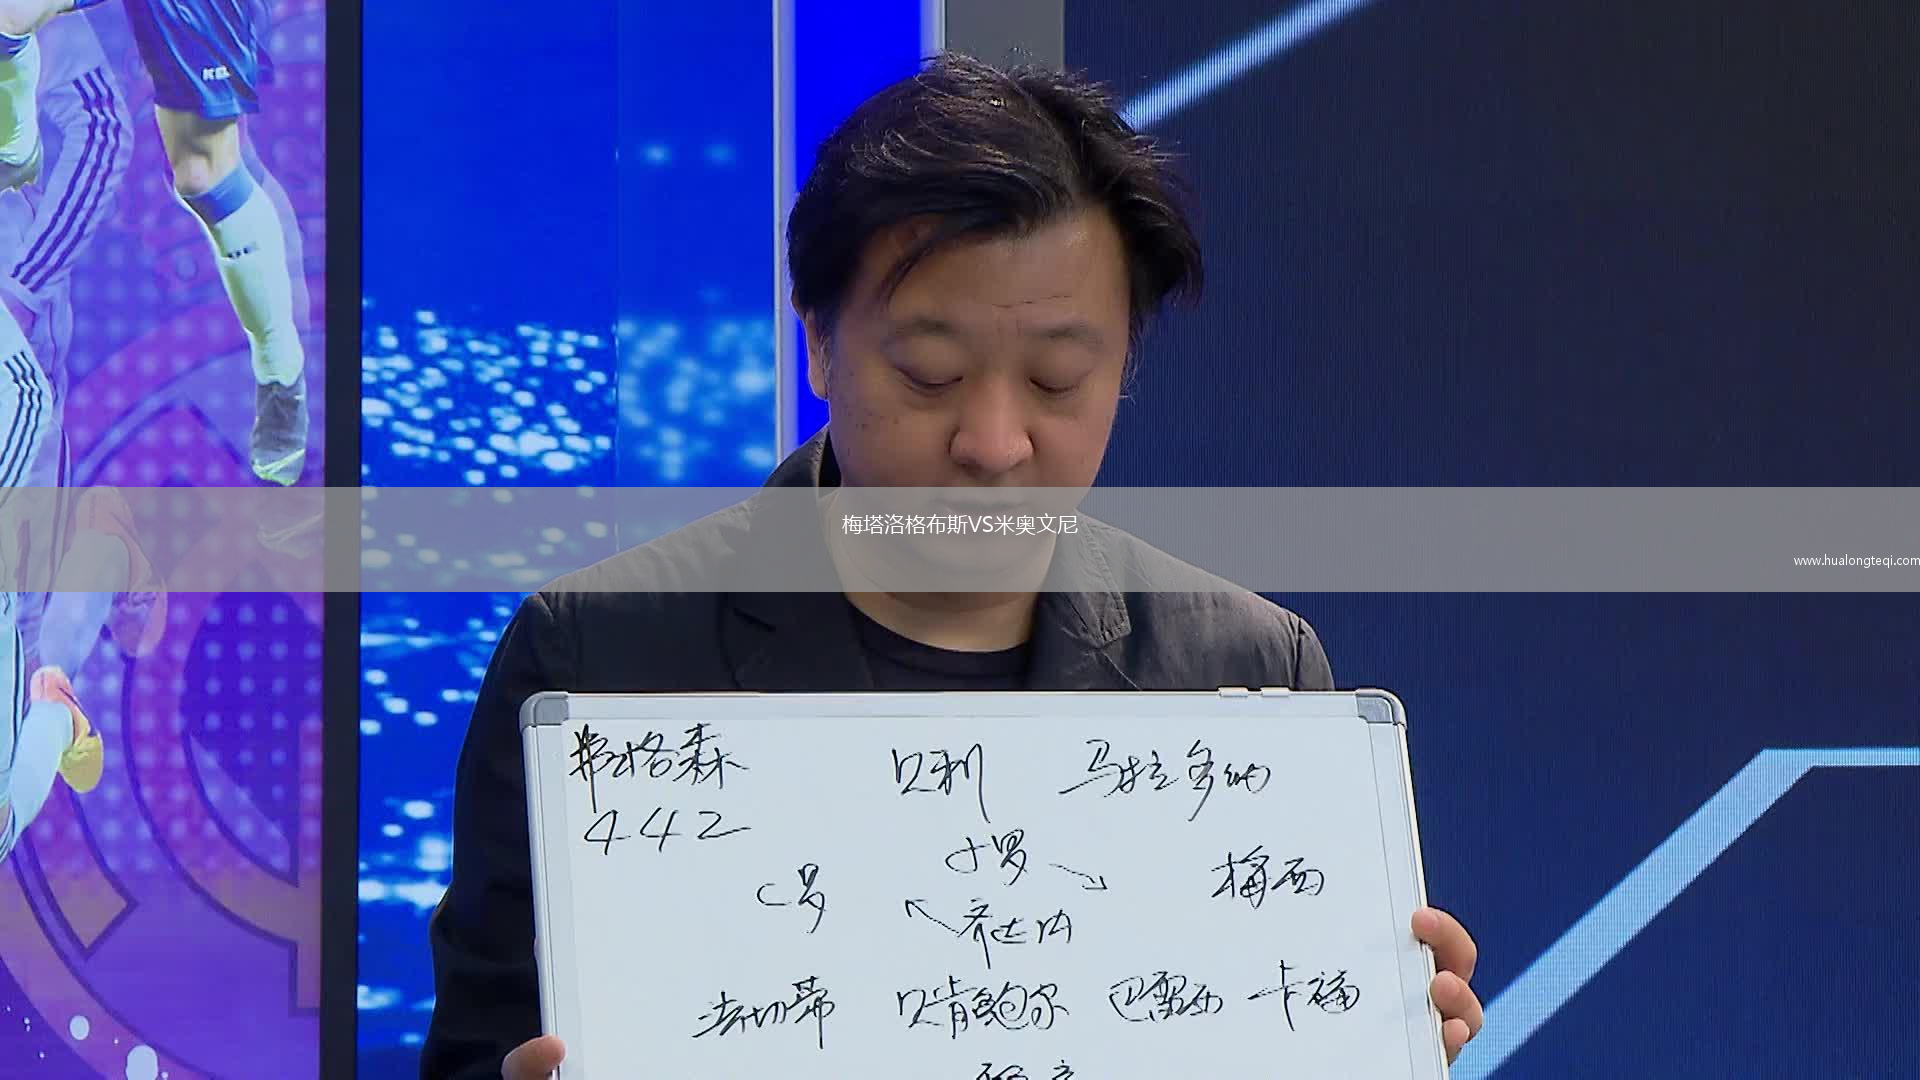 KEL
梅塔洛格布斯VS米奥文尼
www.hualongteqi.com
弗格森 贝利 马拉多纳
442
小罗
C罗 梅西
齐达内
法切蒂 贝肯鲍尔 巴雷西 卡福